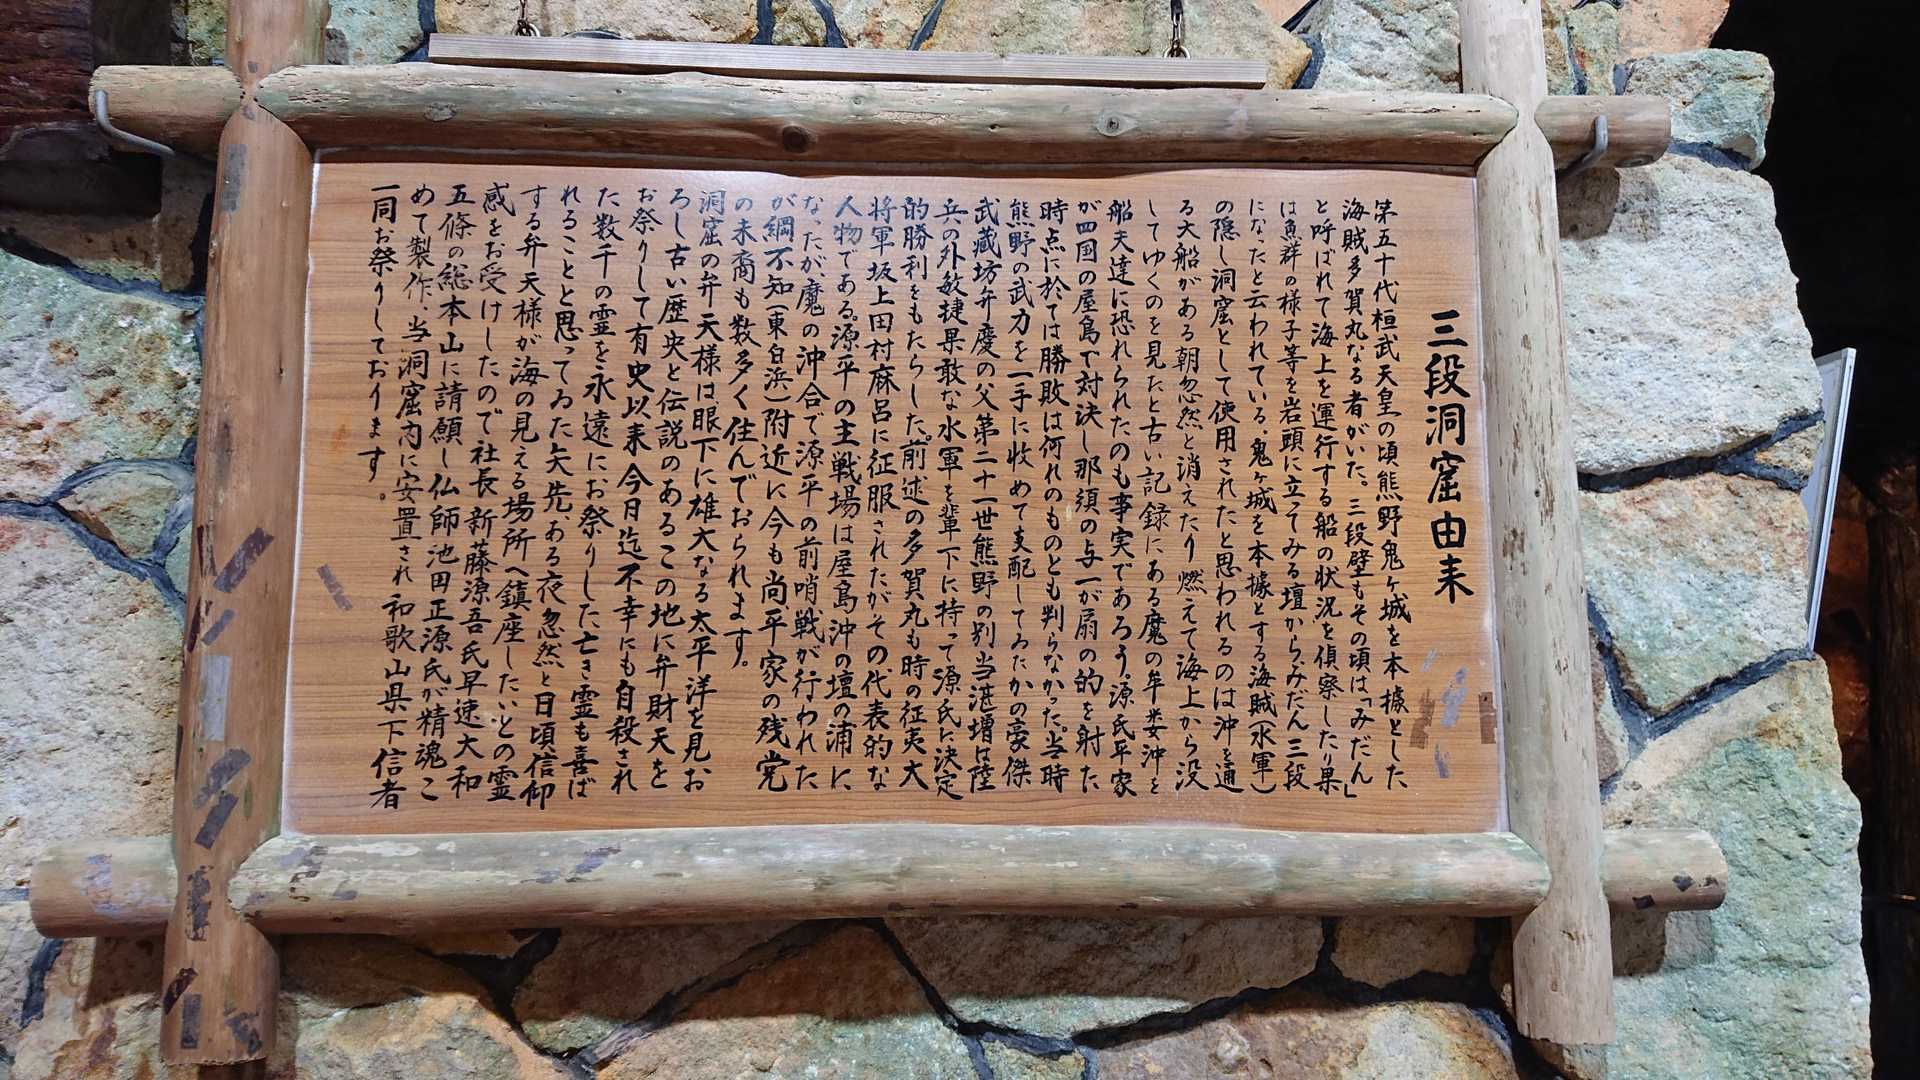 三段洞窟由来
第五十代桓武天皇の頃熊野鬼ヶ城を本據とした
海賊多賀丸なる者がいた。三段壁もその頃は「みだん」
と呼ばれて海上を運行する船の状況を偵察したり果
は魚群の様子等を岩頭に立ってみる壇からみだん三段
になったと云われている。鬼ヶ城を本據とする海賊(水軍)
の隠し洞窟として使用されたと思われるのは沖を通
る大船がある朝忽然と消えたり燃えて海上から没
してゆくのを見たと古い記録にある魔の牟婁沖を
船夫達に恐れられたのも事実であろう。源氏平家
が四国の屋島で対決し那須の与一が扇の的を射た
時点に於ては勝敗は何れのものとも判らなかった。当時
熊野の武力を一手に收めて支配してゐたかの豪傑
武蔵坊弁慶の父第二十一世熊野の別当湛増は陸
兵の外敏捷果敢な水軍を輩下に持って源氏に決定
的勝利をもたらした。前述の多賀丸も時の征夷大
将軍坂上田村麻呂に征服されたがその代表的な
人物である。源平の主戦場は屋島沖の壇の浦に
なったが、魔の沖合で源平の前哨戦が行われた
が綱不知(東白浜)附近に今も尚、平家の残党
の末裔も数多く住んでおられます。
洞窟の弁天様は、眼下に雄大なる太平洋を見お
ろし古い歴史と伝説のあるこの地に弁財天を
お祭りして有史以来今日迄不幸にも自殺され
た数千の霊を永遠にお祭りした亡き霊も喜ば
れることと思ってゐた矢先、ある夜忽然と日頃信仰
する弁天様が海の見える場所へ鎮座したいとの霊
感をお受けしたので社長新藤源吾氏早速大和
五條の総本山に請願し仏師池田正源氏が精魂こ
めて製作、当洞窟内に安置され和歌山県下信者
一同お祭りしております。